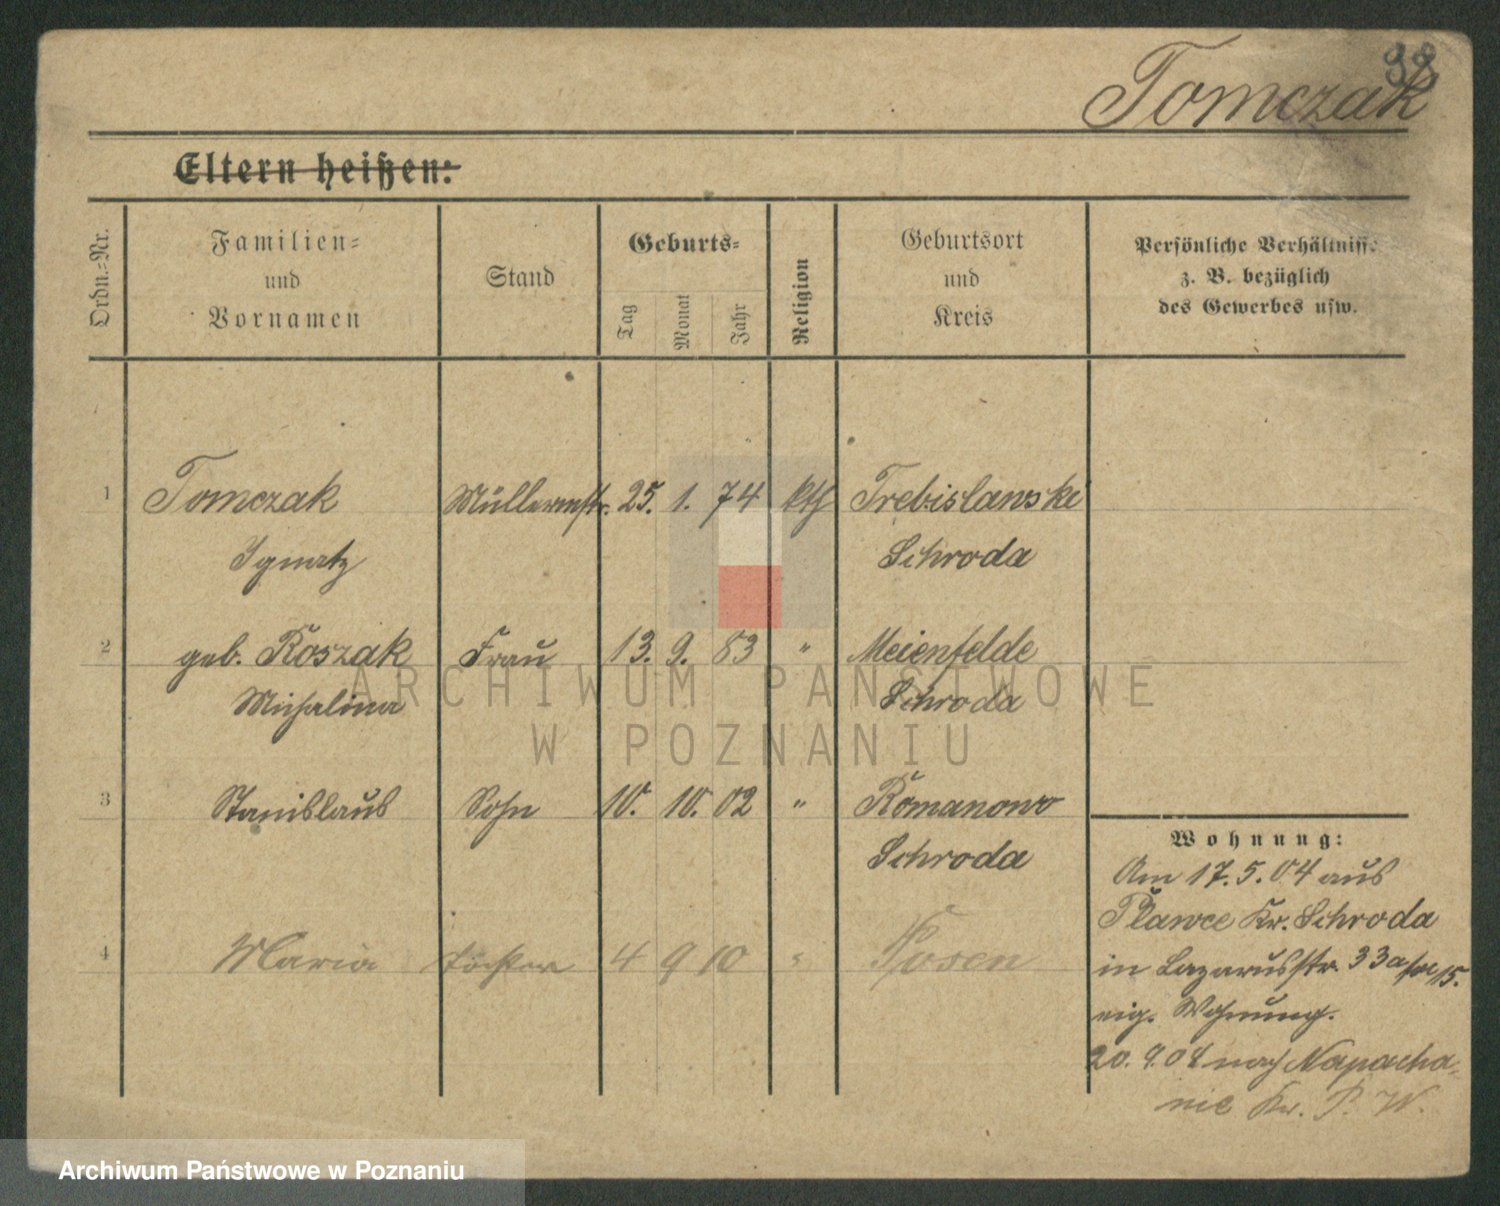 98
Tomczak
Eltern heißen:
Ordn.-Nr.
Familien-
und
Vornamen
Stand
Geburts-
Tag
Monat
Jahr
Religion
Geburtsort
und
Kreis
Persönliche Verhältnisse
z. B. bezüglich
des Gewerbes usw.
1 Tomczak Müllermstr. 25. 1. 74 kth Trebislawske
Ignatz Schroda
2 geb. Roszak Frau 13. 9. 83 " Meienfelde
Michalina Schroda
3 Stanislaus Sohn 10. 10. 02 " Romanowo
Schroda
4 Maria Tochter 4 9 10 " Posen
Wohnung:
Am 17.5.04 aus
Pławce Kr. Schroda
in Lazarusstr. 33a
eig. Wohnung.
20.9.04 nach Napacha-
nie Kr. P. W.
ARCHIWUM PAŃSTWOWE
W POZNANIU
Archiwum Państwowe w Poznaniu